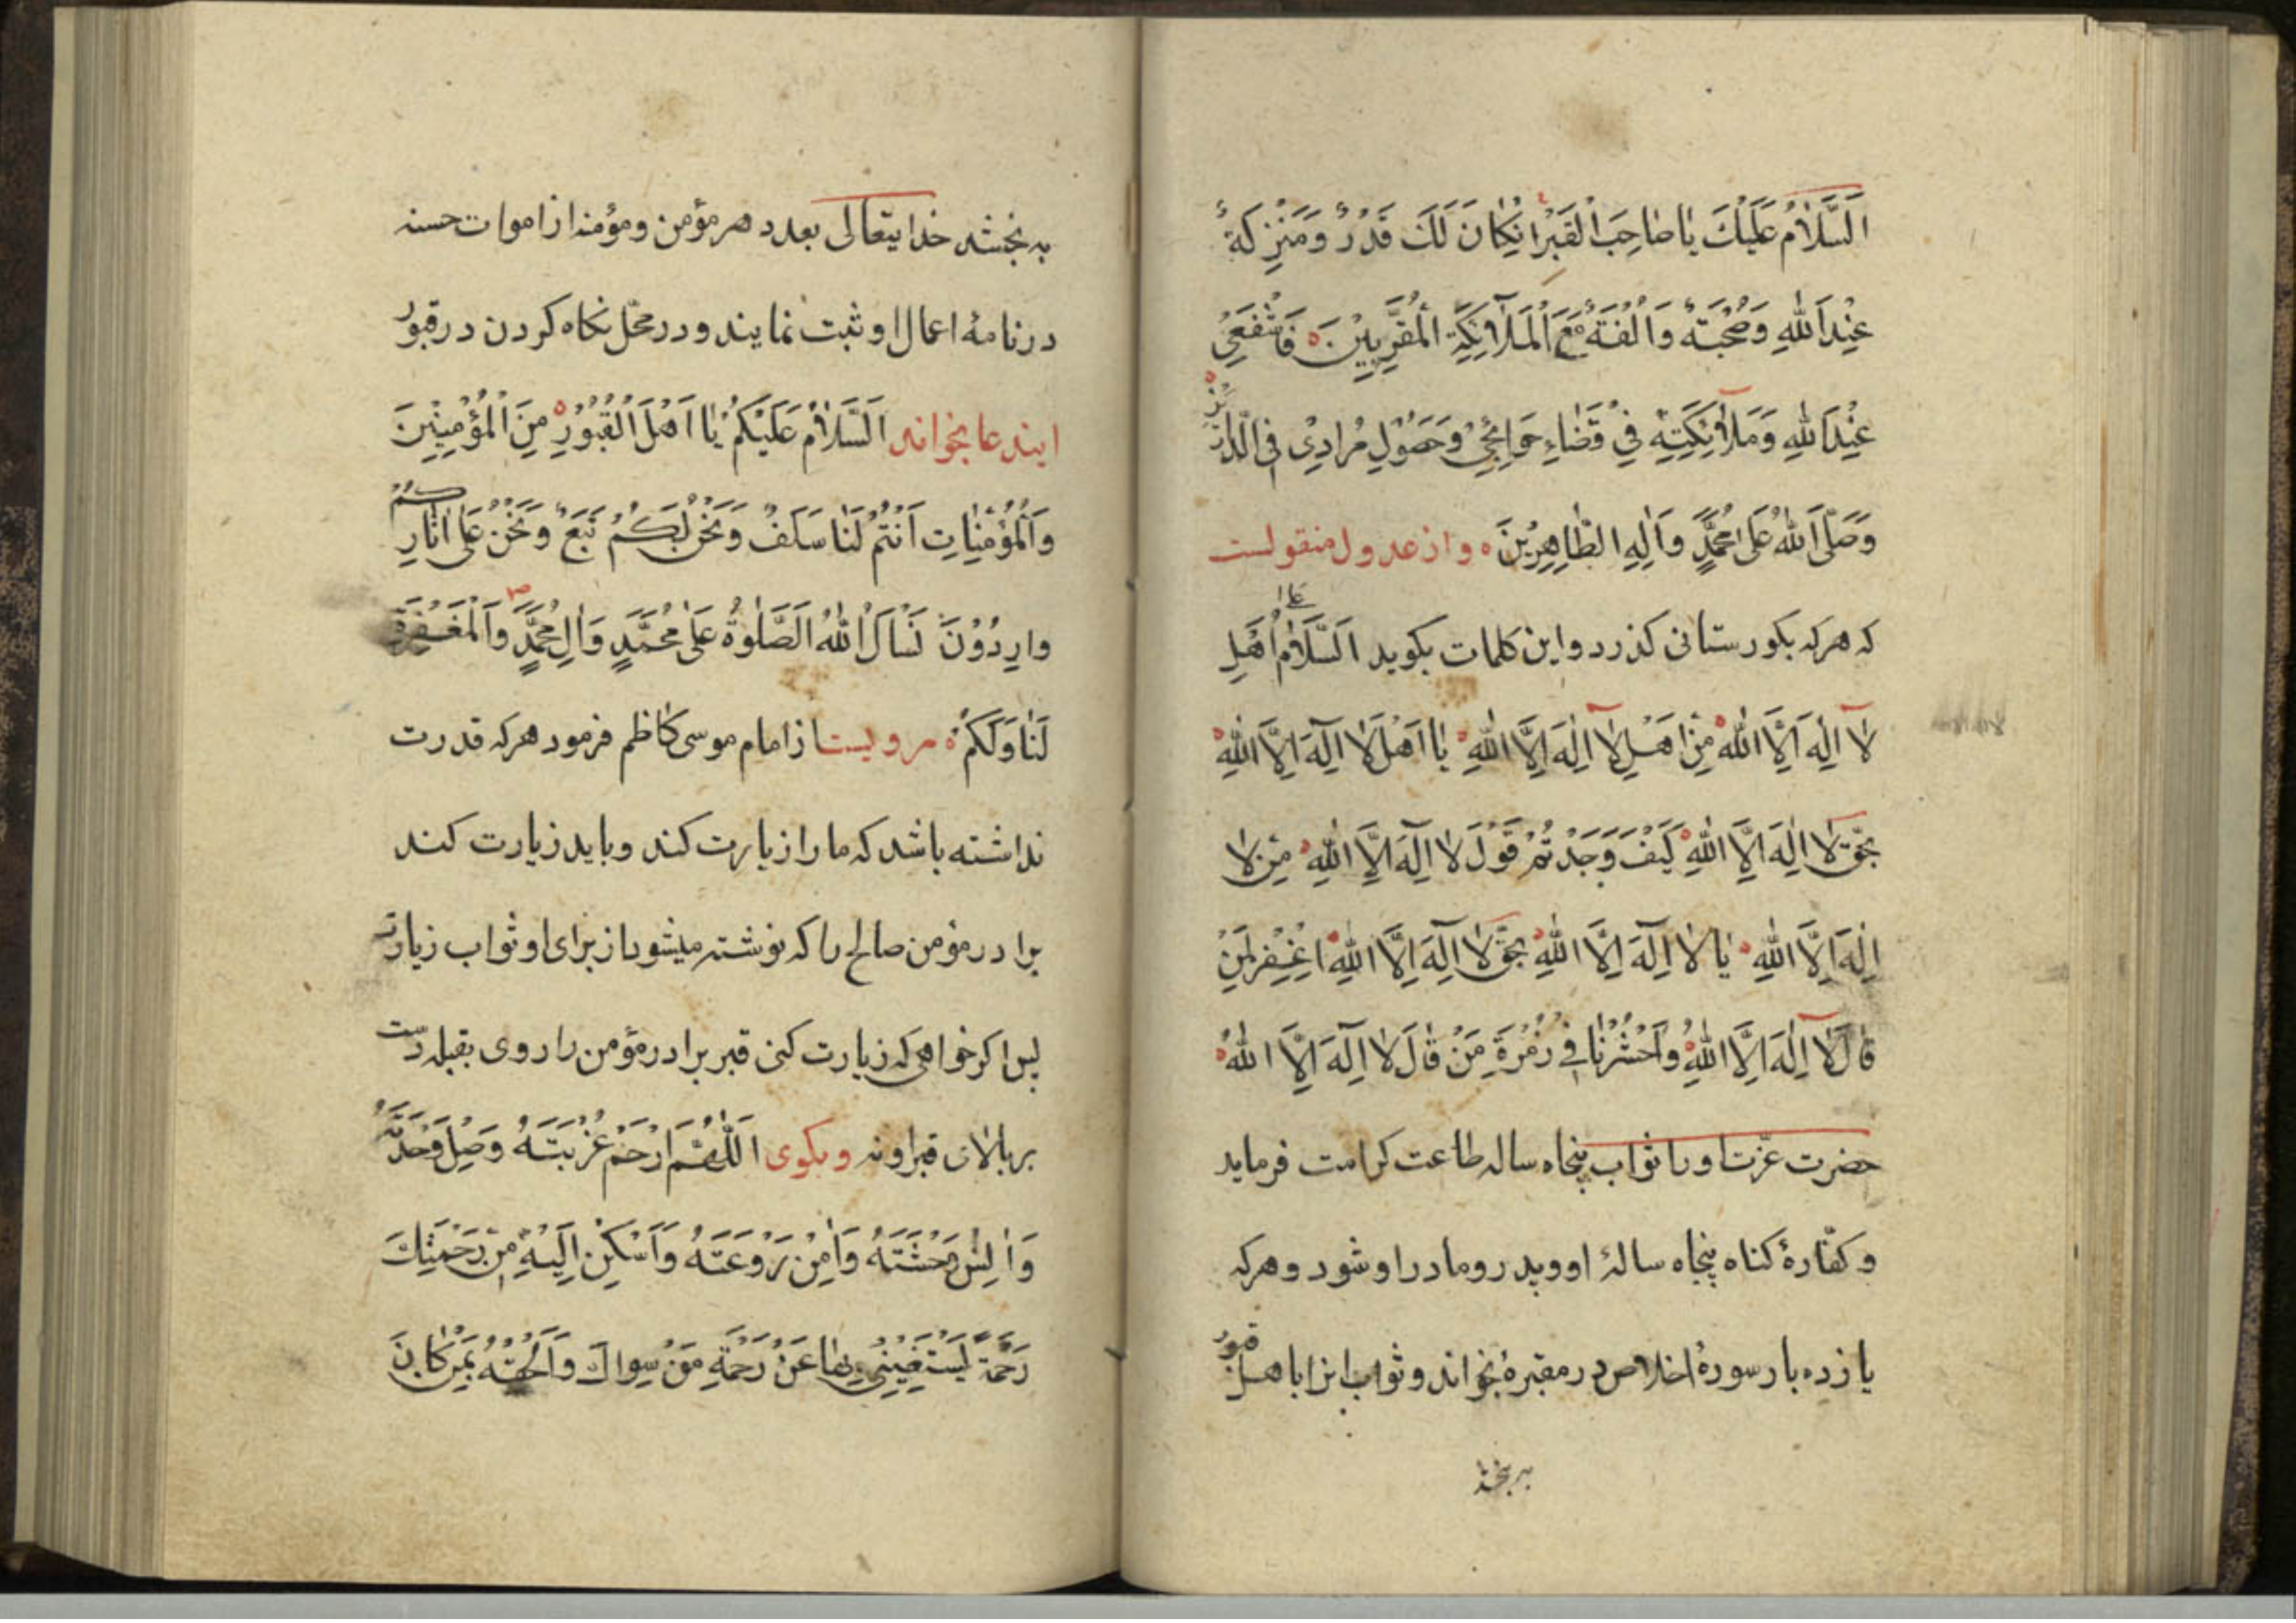 اَلسَّلَامُ عَلَيْكَ يَا صَاحِبَ الْقَبْرِ اِنْ كَانَ لَكَ قَدْرٌ وَمَنْزِلَةٌ
عِنْدَ اللّٰهِ وَصُحْبَةٌ وَاُلْفَةٌ مَعَ الْمَلَآئِكَةِ الْمُقَرَّبِيْنَ فَاشْفَعْنِيْ
عِنْدَ اللّٰهِ وَمَلَآئِكَتِهٖ فِيْ قَضَاءِ حَوَائِجِيْ وَحَصُوْلِ مُرَادِيْ فِي الدَّارَيْنِ
وَصَلَّى اللّٰهُ عَلٰى مُحَمَّدٍ وَاٰلِهِ الطَّاهِرِيْنَ واز عدول منقولست
که هرکه بکورستانی کذرد واین کلمات بکوید اَلسَّلَامُ عَلٰى اَهْلِ
لَا اِلٰهَ اِلَّا اللّٰهُ مِنْ اَهْلِ لَا اِلٰهَ اِلَّا اللّٰهِ يَا اَهْلَ لَا اِلٰهَ اِلَّا اللّٰهِ
بِحَقِّ لَا اِلٰهَ اِلَّا اللّٰهِ كَيْفَ وَجَدْتُمْ قَوْلَ لَا اِلٰهَ اِلَّا اللّٰهِ مِنْ لَا
اِلٰهَ اِلَّا اللّٰهِ يَا لَا اِلٰهَ اِلَّا اللّٰهِ بِحَقِّ لَا اِلٰهَ اِلَّا اللّٰهِ اِغْفِرْ لِمَنْ
قَالَ لَا اِلٰهَ اِلَّا اللّٰهُ وَاحْشُرْنَا فِي زُمْرَةِ مَنْ قَالَ لَا اِلٰهَ اِلَّا اللّٰهُ
حضرت عزّت او را ثواب پنجاه ساله طاعت کرامت فرماید
و کفّارهٔ کناه پنجاه سالهٔ او وپدر ومادر او شود وهرکه
یازده بار سورهٔ اخلاص در مقبرهٔ بخواند وثواب انرا باهل قبور
به بخشد
به بخشد خدایتعالی بعدد هر مؤمن ومؤمنه از اموات حسنه
در نامهٔ اعمال او ثبت نمایند ودر محلّ نکاه کردن در قبور
ایندعا بخواند اَلسَّلَامُ عَلَيْكُمْ يَا اَهْلَ الْقُبُوْرِ مِنَ الْمُؤْمِنِيْنَ
وَالْمُؤْمِنَاتِ اَنْتُمْ لَنَا سَلَفٌ وَنَحْنُ لَكُمْ تَبَعٌ وَنَحْنُ عَلٰى اٰثَارِكُمْ
وارِدُوْنَ نَسْاَلُ اللّٰهَ الصَّلٰوةَ عَلٰى مُحَمَّدٍ وَاٰلِ مُحَمَّدٍ وَالْمَغْفِرَةَ
لَنَا وَلَكُمْ مرویست از امام موسی کاظم فرمود هرکه قدرت
نداشته باشد که ما را زیارت کند وباید زیارت کند
برادر مؤمن صالح را که نوشته میشود از برای او ثواب زیارت
پس اکر خواهی که زیارت کنی قبر برادر مؤمن را روی بقبله دست
بر بالای قبر او نه وبکوی اَللّٰهُمَّ ارْحَمْ غُرْبَتَهُ وَصِلْ وَحْدَتَهُ
وَاٰنِسْ وَحْشَتَهُ وَاٰمِنْ رَوْعَتَهُ وَاَسْكِنْ اِلَيْهِ مِنْ رَحْمَتِكَ
رَحْمَةً يَسْتَغْنِيْ بِهَا عَنْ رَحْمَةِ مَنْ سِوَاكَ وَاَلْحِقْهُ بِمَنْ كَانَ